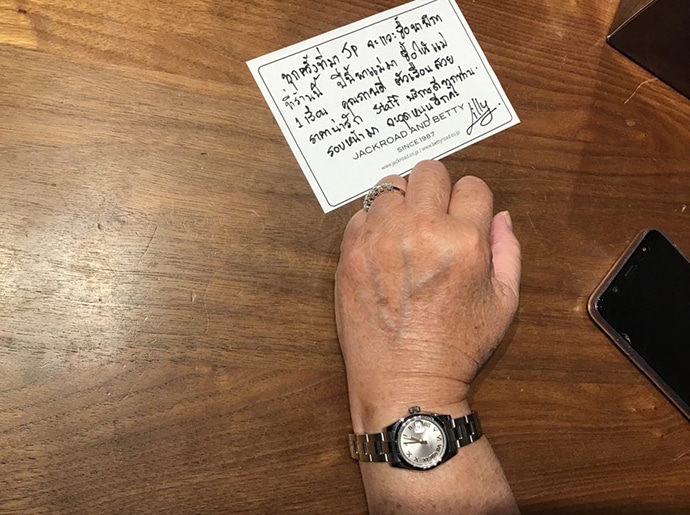 ทุกครั้งที่มา JP จะแวะซื้อนาฬิกา
ที่ร้านนี้ ปีนี้พาแม่มา ซื้อให้แม่
1 เรือน คุณภาพดี ตัวเรือนสวย
ราคาน่ารัก Staff บริการดีทุกท่าน
รอบหน้ามา จะอุดหนุนอีกค่ะ
Lilly.
JACKROAD AND BETTY
SINCE1987
www.jackroad.co.jp / www.bettyroad.co.jp